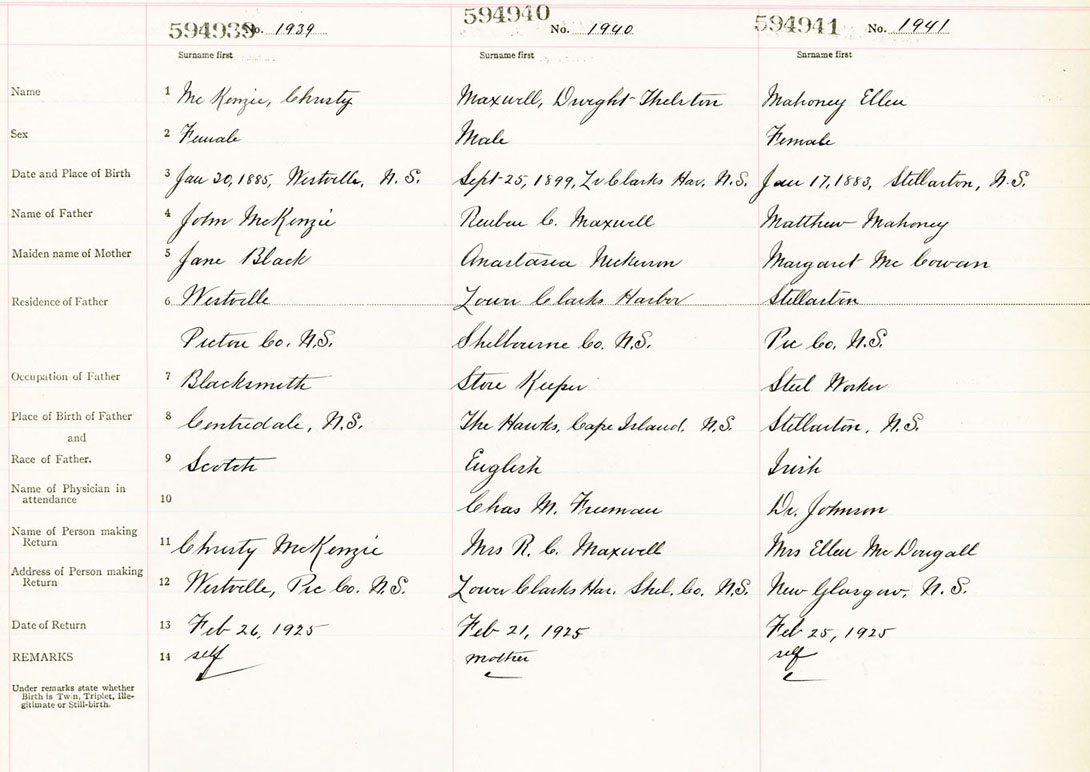 594939 No. 1939 594940 No. 1940 594941 No. 1941
Surname first Surname first Surname first
Name 1 McKenzie, Christy Maxwell, Dwight Thelston Mahoney Ellen
Sex 2 Female Male Female
Date and Place of Birth 3 Jan 20, 1885, Westville, N.S. Sept 25, 1899, Lr Clarks Har. N.S. Jan 17, 1883, Stellarton, N.S.
Name of Father 4 John McKenzie Reuben C. Maxwell Matthew Mahoney
Maiden name of Mother 5 Jane Black Anastasia Nickerson Margaret McCowan
Residence of Father 6 Westville Lower Clarks Harbor Stellarton
Pictou Co. N.S. Shelbourne Co. N.S. Pic Co. N.S.
Occupation of Father 7 Blacksmith Store Keeper Steel Worker
Place of Birth of Father 8 Centredale, N.S. The Hawks, Cape Island, N.S. Stellarton, N.S.
and
Race of Father. 9 Scotch English Irish
Name of Physician in
attendance 10 Chas M. Freeman Dr. Johnson
Name of Person making
Return 11 Christy McKenzie Mrs R. C. Maxwell Mrs Ellen McDougall
Address of Person making
Return 12 Westville, Pic Co. N.S. Lower Clarks Har. Shel. Co. N.S. New Glasgow, N.S.
Date of Return 13 Feb 26, 1925 Feb 21, 1925 Feb 25, 1925
REMARKS 14 self mother self
Under remarks state whether
Birth is Twin, Triplet, Ille-
gitimate or Still-birth.